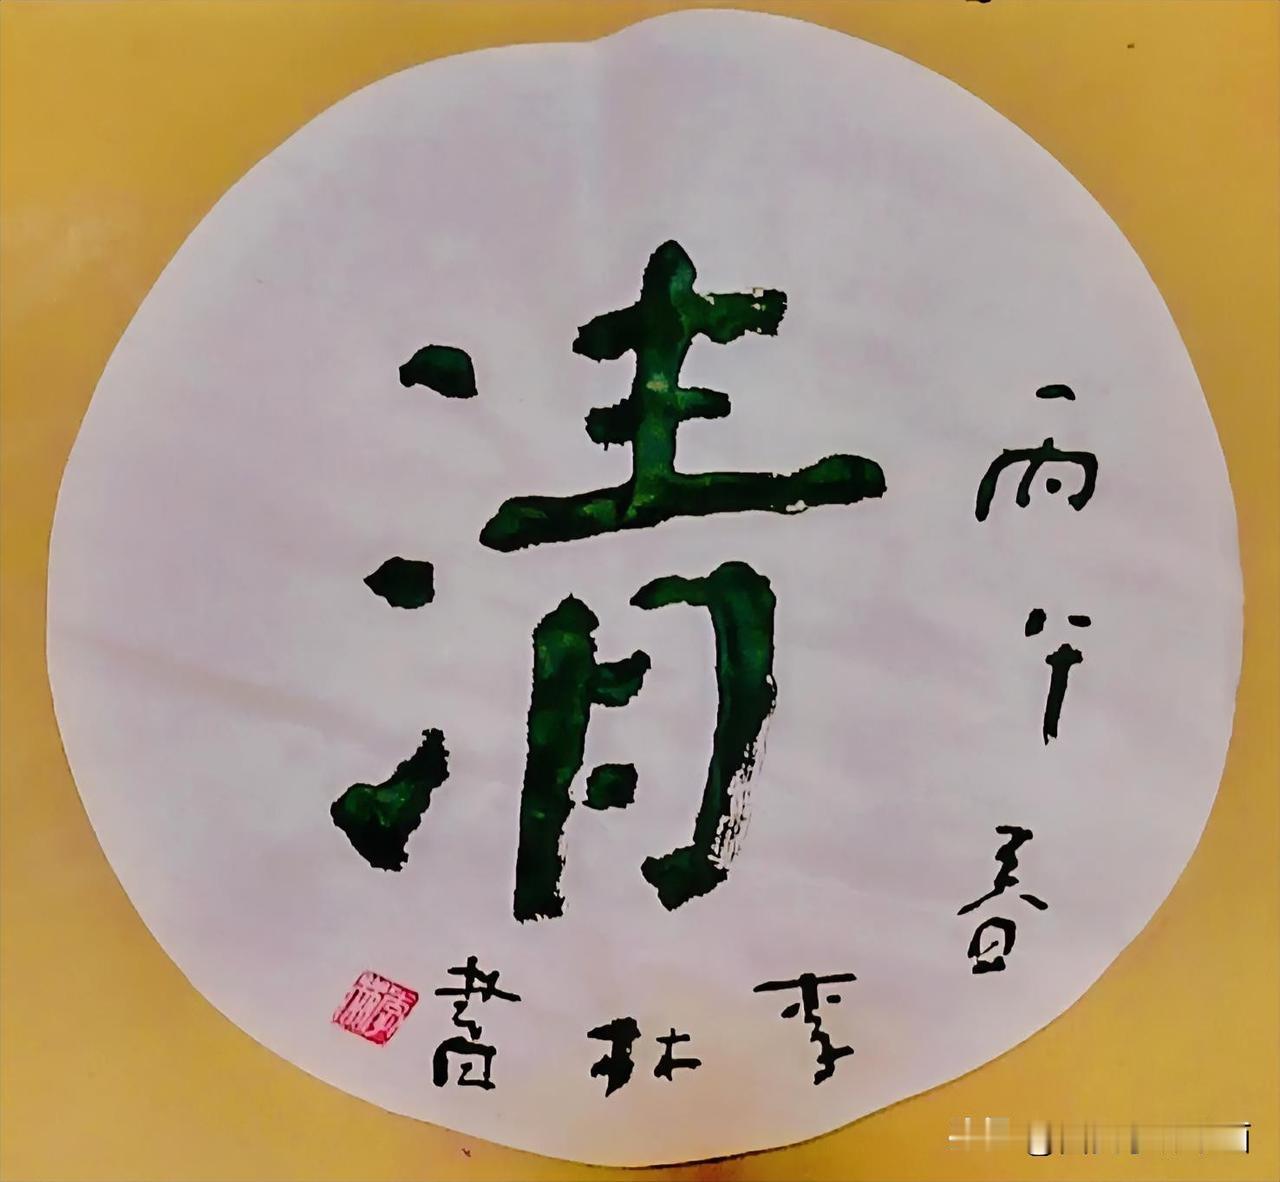 清
丙午春
李林書